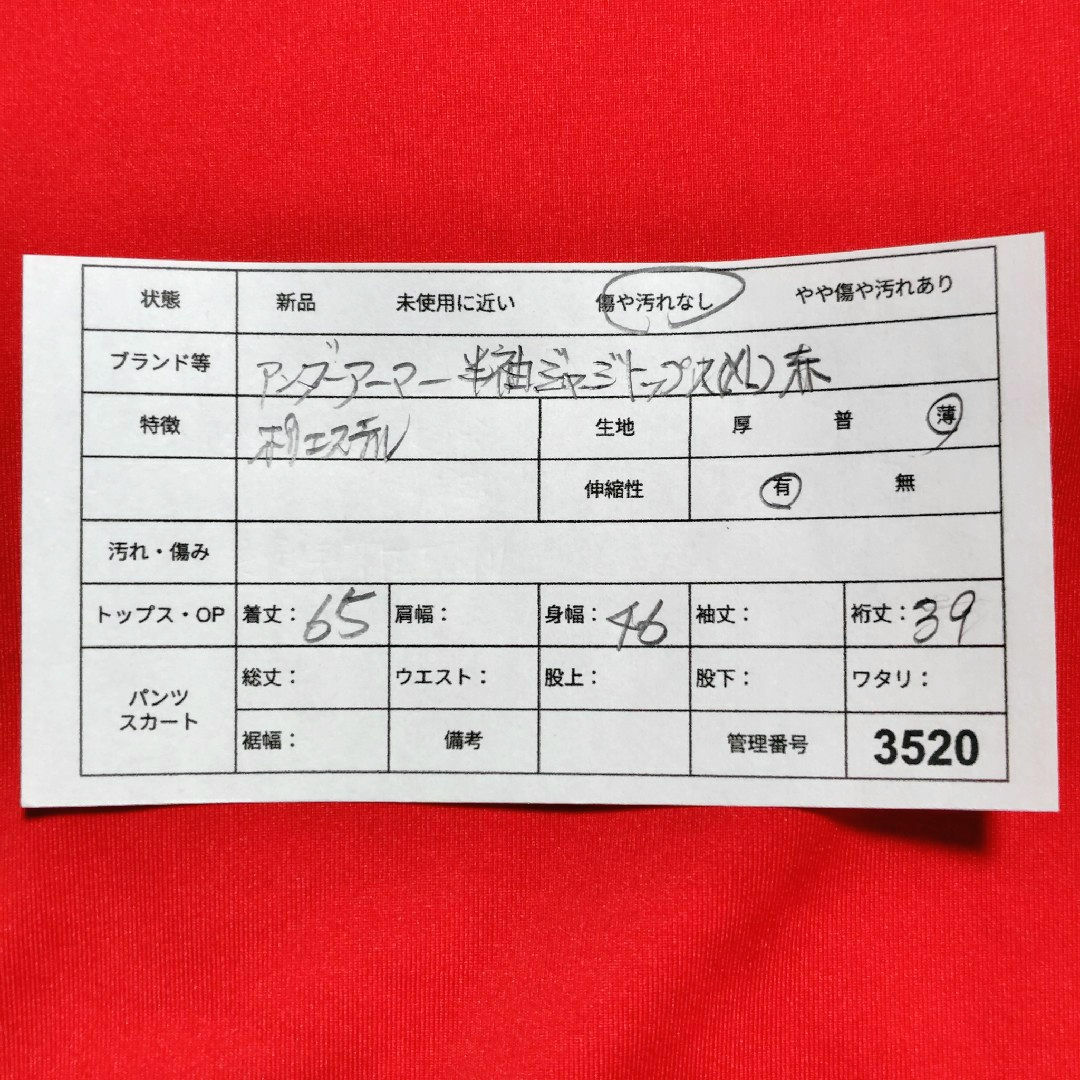 状態 新品 未使用に近い 傷や汚れなし やや傷や汚れあり
ブランド等 アンダーアーマー 半袖ジャージトップス(XL) 赤
特徴 ポリエステル 生地 厚 普 薄
伸縮性 有 無
汚れ・傷み
トップス・OP 着丈: 65 肩幅: 身幅: 46 袖丈: 裄丈: 39
パンツ スカート 総丈: ウエスト: 股上: 股下: ワタリ:
裾幅: 備考 管理番号 3520